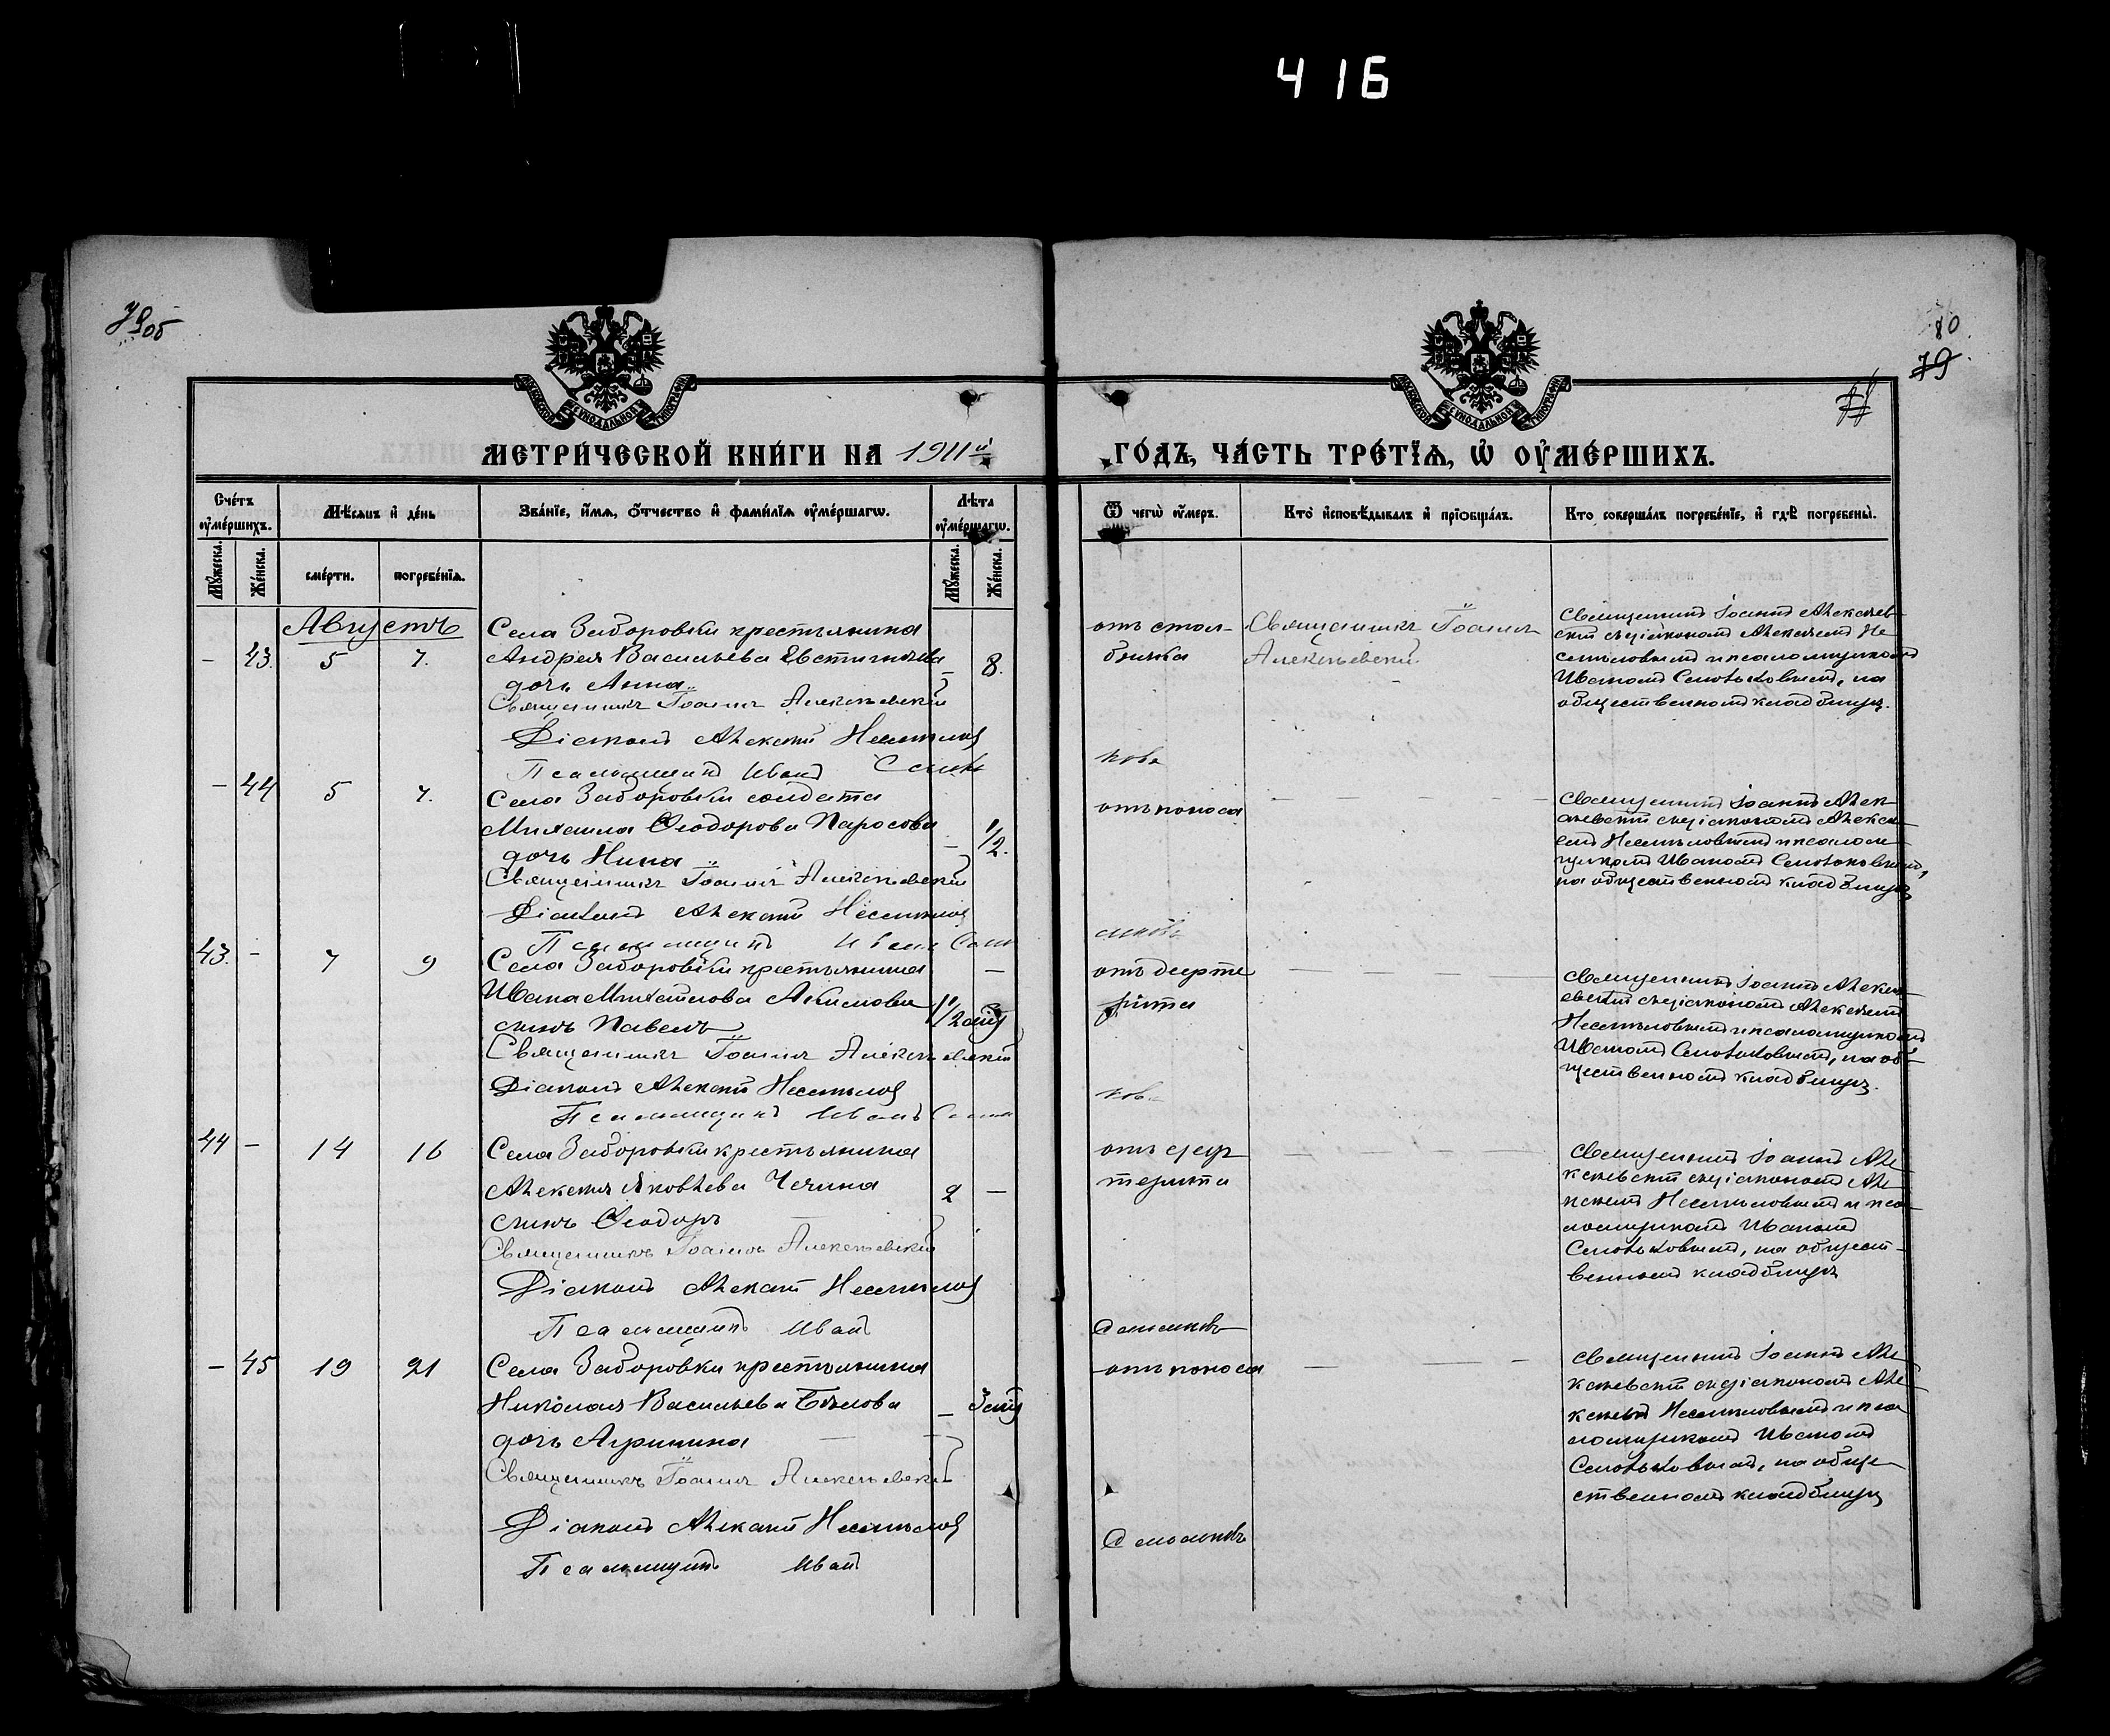 416
79об
80
79
МЕТРИ́ЧЕСКОЙ КНИ́ГИ НА 1911й
ГО́ДЪ, ЧА́СТЬ ТРЕ́ТЇѦ, Ѡ҆ ОУ҆МЕ́РШИХЪ.
Сче́тъ оу҆ме́ршихъ.
Мѣ́сѧцъ и҆ де́нь
Зва́нїе, и҆́мѧ, ѻ҆́тчество и҆ фами́лїѧ оу҆ме́ршагѡ.
Лѣ́та оу҆ме́ршагѡ.
Ѿ чегѡ̀ оу҆́меръ.
Кто̀ и҆сповѣ́дывалъ и҆ прїѡбща́лъ.
Кто соверша́лъ погребе́нїе, и҆ гдѣ̀ погребены̀.
Мꙋ́жеска.
Же́нска.
сме́рти.
погребе́нїѧ.
Мꙋ́жеска.
Же́нска.
Августъ
Села Заборовки крестьянина
- 43. 5 7. Андрея Васильева Евстигнѣева - 8.
дочь Анна
Священникъ Іоаннъ Алексѣевскій
Діаконъ Алексѣй Несмѣловъ
Псаломщикъ Иванъ
отъ стол-
бняка
Священникъ Іоаннъ
Алексѣевскій
Священникъ Іоаннъ Алексѣев-
скій съ діакономъ Алексѣемъ Не
смѣловымъ и псаломщикомъ
Иваномъ, на
общественномъ кладбищѣ.
- 44 5 7. Села Заборовки солдата
Михаила Ѳеодорова - 1/2.
дочь Нина
Священникъ Іоаннъ Алексѣевскій
Діаконъ Алексѣй Несмѣловъ
Псаломщикъ Иванъ
отъ поноса
Священникъ Іоаннъ Алек
сѣевскій съ діакономъ Алексѣ-
емъ Несмѣловымъ и псалом-
щикомъ Иваномъ
на общественномъ кладбищѣ
43. - 7 9 Села Заборовки крестьянина -
Ивана Михайлова Акимова 1 1/2
сынъ Павелъ
Священникъ Іоаннъ Алексѣевскій
Діаконъ Алексѣй Несмѣловъ
Псаломщикъ Иванъ
Священникъ Іоаннъ Алексѣ-
евскій съ діакономъ Алексѣемъ
Несмѣловымъ и псаломщикомъ
Иваномъ, на об-
щественномъ кладбищѣ.
44 - 14 16 Села Заборовки крестьянина
Алексѣя Яковлева 2 -
сынъ Ѳеодоръ
Священникъ Іоаннъ Алексѣевскій
Діаконъ Алексѣй Несмѣловъ
Псаломщикъ Иванъ
Священникъ Іоаннъ Але
ксѣевскій съ діакономъ Але
ксѣемъ Несмѣловымъ и пса
ломщикомъ Иваномъ
на общест-
венномъ кладбищѣ
- 45 19 21 Села Заборовки крестьянина
Николая Васильева Бѣлова -
дочь Агрипина
Священникъ Іоаннъ Алексѣевскій
Діаконъ Алексѣй Несмѣловъ
Псаломщикъ Иванъ
отъ поноса
Священникъ Іоаннъ Але
ксѣевскій съ діакономъ Але
ксѣемъ Несмѣловымъ и пса
ломщикомъ Иваномъ
на обще
ственномъ кладбищѣ